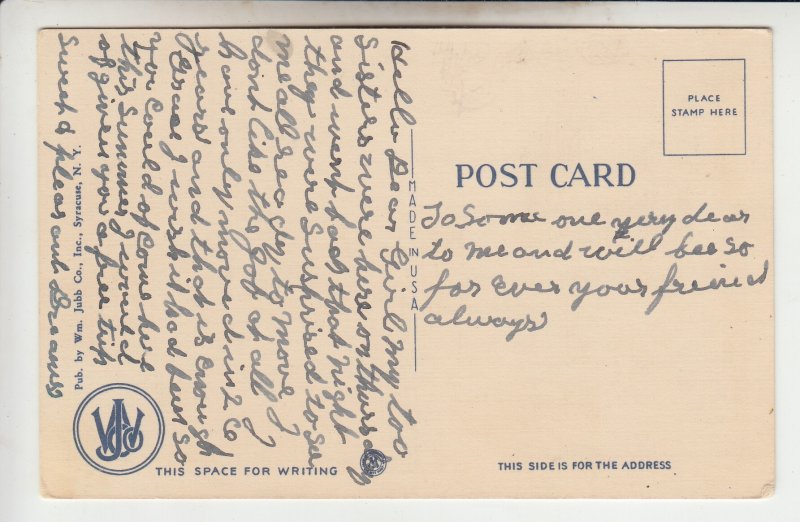 Hello Dear Girl my too
sisters were here on thursday
and went back that night
they were Surprised to see
me all ready to move I
dont like the Job at all I
have only moved in 26
years and that is enough
Grace I wish it had been so
you could of come here
this Summer I would
of given you a free trip
Sweet & pleas ant Dreams
Pub. by Wm. Jubb Co., Inc., Syracuse, N. Y.
WJCO
THIS SPACE FOR WRITING
MADE IN USA
PLACE
STAMP HERE
POST CARD
To Some one very dear
to me and will bee so
for Ever your friend
always
THIS SIDE IS FOR THE ADDRESS